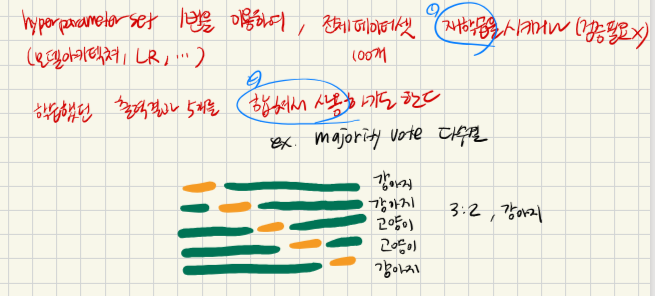 hyperparameter set 1번을 이용하여, 전체 데이터셋 ① 재학습을 시키거나 (검증필요x)
(모델아키텍쳐, LR, ...) 100개
②
학습했던 출력결과 5개를 합쳐서 사용하기도 한다
ex. majority vote 다수결
강아지
강아지
고양이
고양이
강아지
3:2, 강아지